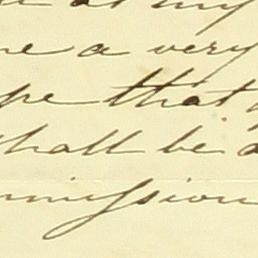 at my
me a very
pe that
shall be a
mmission